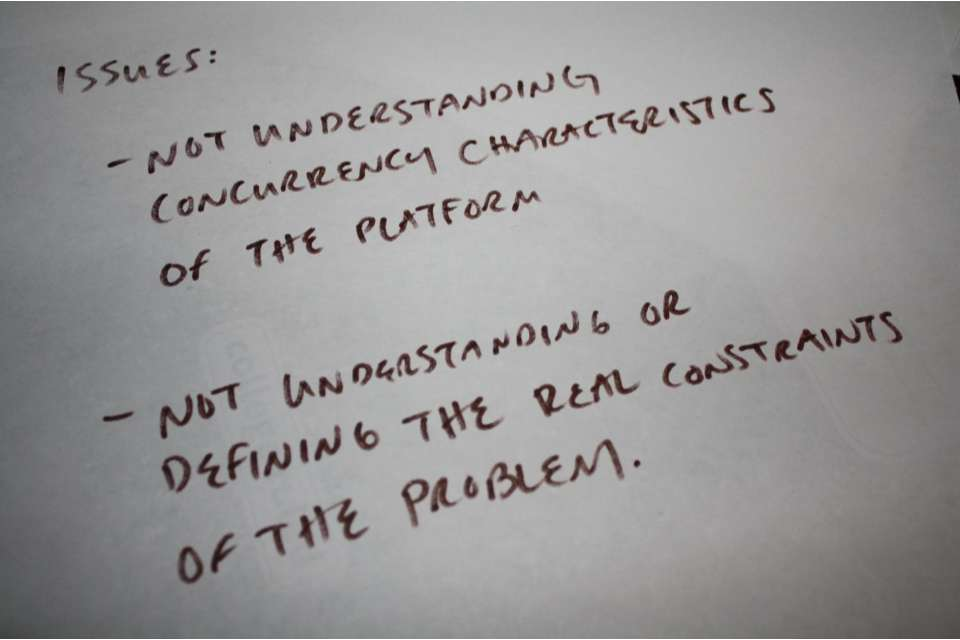 ISSUES:
- NOT UNDERSTANDING
CONCURRENCY CHARACTERISTICS
OF THE PLATFORM
- NOT UNDERSTANDING OR
DEFINING THE REAL CONSTRAINTS
OF THE PROBLEM.